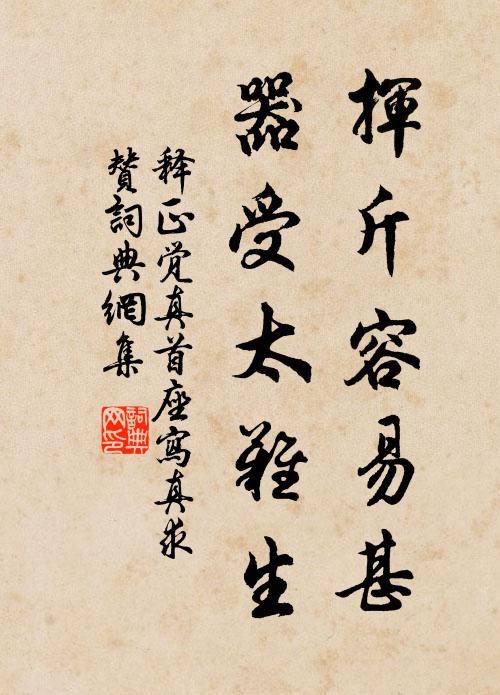 揮斤容易甚
器受太難生
释正觉真首座寫真求
赞詞典網集
詞典网印